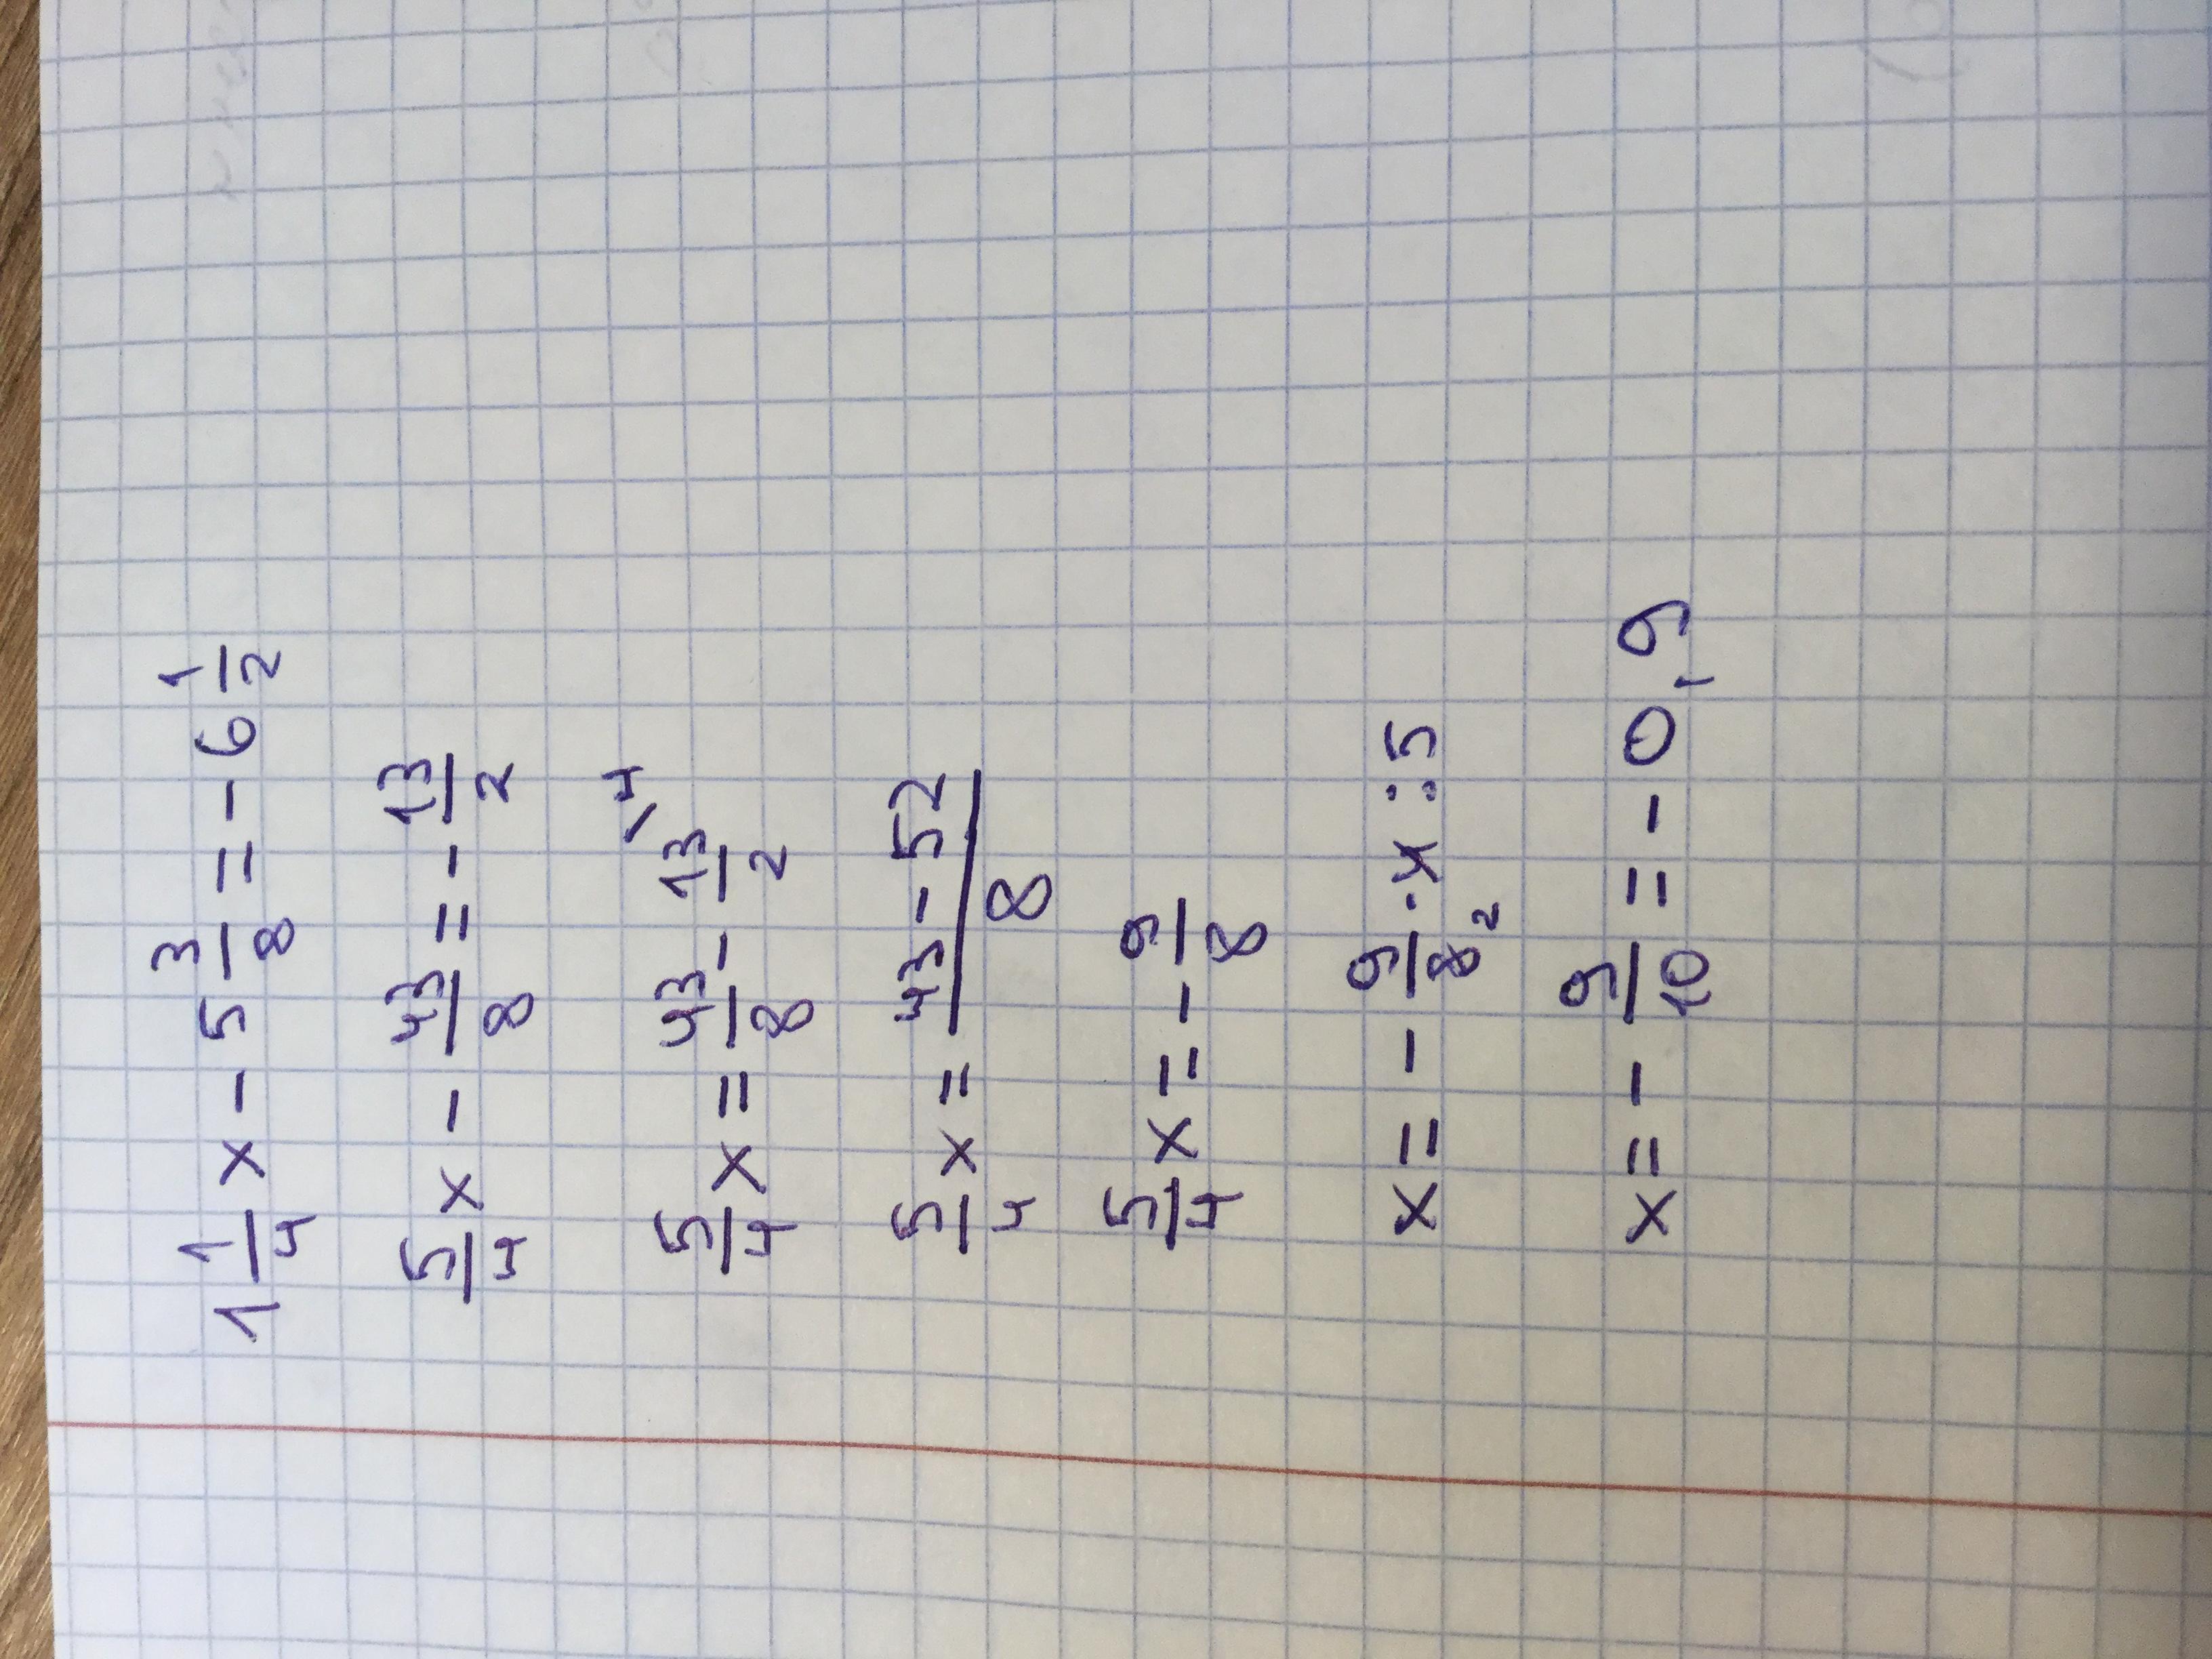 1 1/4 x - 5 3/8 = - 6 1/2
5/4 x - 43/8 = - 13/2
5/4 x = 43/8 - 13/2 \4
5/4 x = (43 - 52)/8
5/4 x = - 9/8
x = - 9/8 2 · 4 : 5
x = - 9/10 = - 0,9